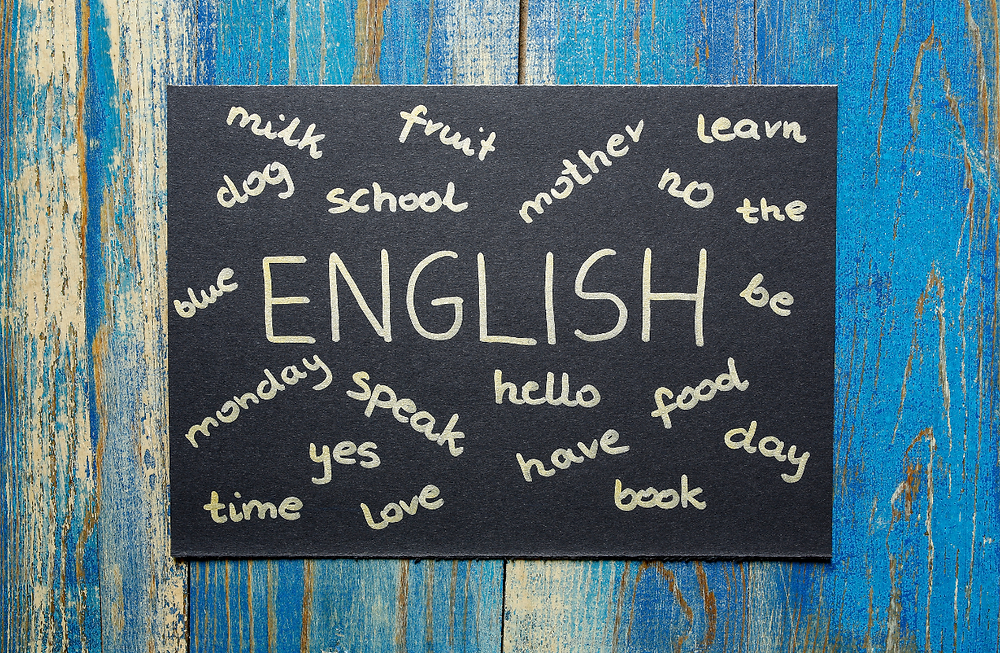 milk
fruit
mother
learn
dog
school
no
the
blue
ENGLISH
be
monday
speak
hello
food
yes
have
day
time
love
book